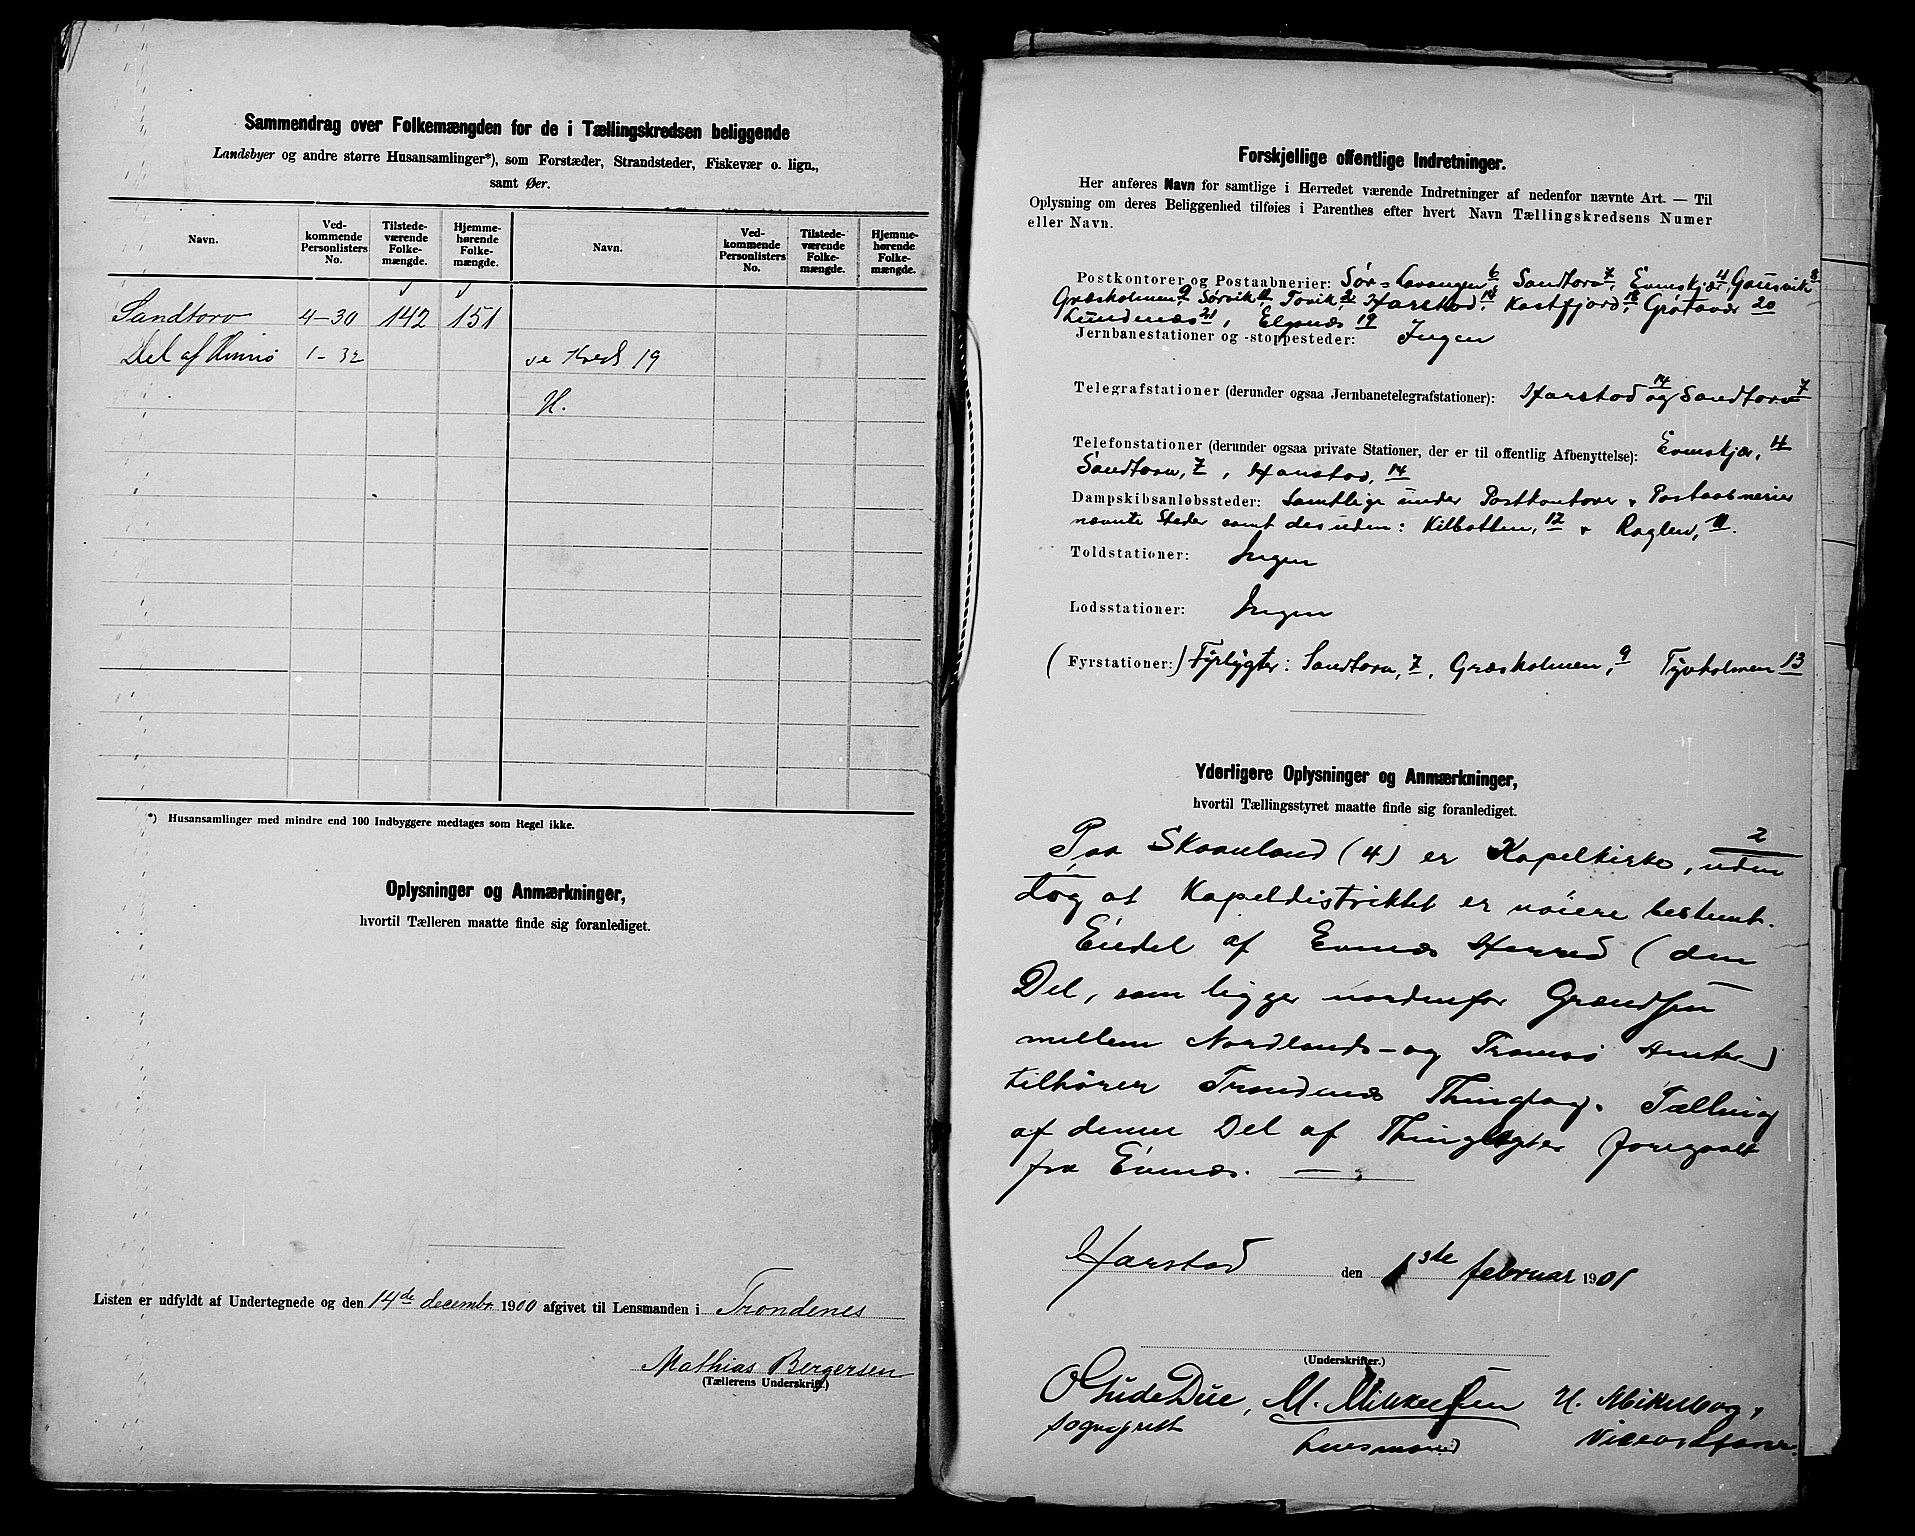 Sammendrag over Folkemængden for de i Tællingskredsen beliggende
Landsbyer og andre større Husansamlinger*), som Forstæder, Strandsteder, Fiskevær o. lign.,
samt Øer.
Navn. Ved-kommende Personlisters No. Tilstede-værende Folke-mængde. Hjemme-hørende Folke-mængde. Navn. Ved-kommende Personlisters No. Tilstede-værende Folke-mængde. Hjemme-hørende Folke-mængde.
Sandtorv 4-30 142 151
Del af Hinnø 1-32 se Kreds 19
H.
*) Husansamlinger med mindre end 100 Indbyggere medtages som Regel ikke.
Oplysninger og Anmærkninger,
hvortil Tælleren maatte finde sig foranlediget.
Listen er udfyldt af Undertegnede og den 14de decembr. 1900 afgivet til Lensmanden i Trondenes
Mathias Bergersen
(Tællerens Underskrift.)
Forskjellige offentlige Indretninger.
Her anføres Navn for samtlige i Herredet værende Indretninger af nedenfor nævnte Art. — Til
Oplysning om deres Beliggenhed tilføies i Parenthes efter hvert Navn Tællingskredsens Numer
eller Navn.
Postkontorer og Postaabnerier: Sør-Lavangen 6, Sandtorv 7, Evenskjær 4, Gausvik 8
Græsholmen 9, Sørvik 11, Tovik 2, Harstad 14, Kastfjord 18, Grøtavær 20
Lundenæs 21, Elgsnæs 19
Jernbanestationer og -stoppesteder: Ingen
Telegrafstationer (derunder ogsaa Jernbanetelegrafstationer): Harstad 14 og Sandtorv 7
Telefonstationer (derunder ogsaa private Stationer, der er til offentlig Afbenyttelse): Evenskjær, 4
Sandtorv, 7, Harstad, 14
Dampskibsanløbssteder: Samtlige under Postkontorer & Postaabnerier
nævnte Steder samt desuden: Kilbotten, 12 & Roglen, 11.
Toldstationer: Ingen
Lodsstationer: Ingen
(Fyrstationer:) Fyrlygter: Sandtorv, 7, Græsholmen, 9 Tjuvholmen 13
Yderligere Oplysninger og Anmærkninger,
hvortil Tællingsstyret maatte finde sig foranlediget.
Paa Skaanland (4) er Kapelkirke, 2 uden
dog at Kapeldistriktet er nøiere bestemt.
Endel af Evenæs Herred (den
Del, som ligger nordenfor Grændsen
mellem Nordlands- og Tromsø Amter)
tilhører Trondenæs Thinglag. Tælling
af denne Del af Thinglaget foregaaet
fra Evenæs.
Harstad den 1ste februar 1901
(Underskrifter.)
O Gude Due, M. Mikkelsen H. Mikelborg,
sogneprest Lensmand Viceordfører.